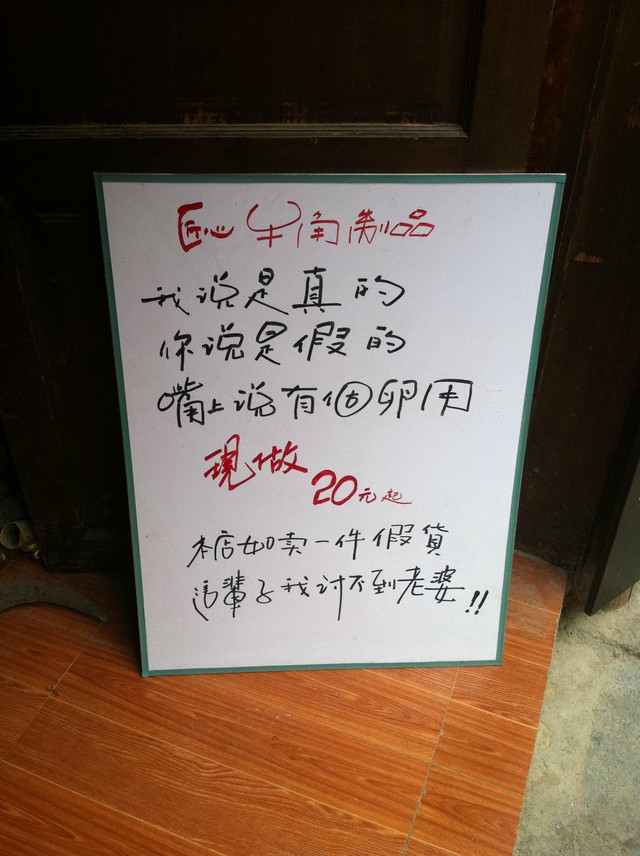 匠心牛角制品
我说是真的
你说是假的
嘴上说有個卵用
現做
20元起
本店如卖一件假貨
這輩子我讨不到老婆!!